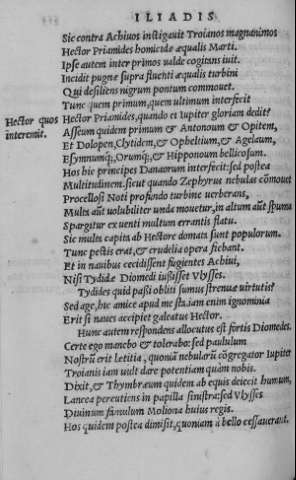 ILIADIS
Sic contra Achiuos instigauit Troianos magnanimos
Hector Priamides homicidæ æqualis Marti.
Ipse autem inter primos ualde cogitans iuit.
Incidit pugnæ supra fluenti æqualis turbini
Qui desiliens nigrum pontum commouet.
Tunc quem primum, quem ultimum interfecit
Hector quos Hector Priamides, quando et Iupiter gloriam dedit?
interemit. Asseum quidem primum & Antonoum & Opitem,
Et Dolopen, Clytidem, & Opheltium, & Agelaum,
Esymnumq;, Orumq;, & Hipponoum bellicosum.
Hos hic principes Danaorum interfecit: sed postea
Multitudinem. sicut quando Zephyrus nebulas cōmouet
Procellosi Noti profundo turbine uerberans,
Multa aūt uolubiliter unda mouetur, in altum aūt spuma
Spargitur ex uenti multum errantis flatu.
Sic multa capita ab Hectore domata sunt populorum.
Tunc pestis erat, & crudelia opera fiebant.
Et in nauibus cecidissent fugientes Achiui,
Nisi Tydidæ Diomedi iussisset Vlysses.
Tydides quid passi obliti sumus strenuæ uirtutis?
Sed age, huc amice apud me sta. iam enim ignominia
Erit si naues accipiet galeatus Hector.
Hunc autem respondens allocutus est fortis Diomedes.
Certe ego manebo & tolerabo: sed paululum
Nostrū erit Letitia, quoniā nebularū cōgregator Iupiter
Troianis iam uult dare potentiam quàm nobis.
Dixit, & Thymbræum quidem ab equis deiecit humum,
Lancea percutiens in papilla sinistra: sed Vlysses
Diuinum famulum Moliona huius regis.
Hos quidem postea dimisit, quoniam à bello cessauerant.